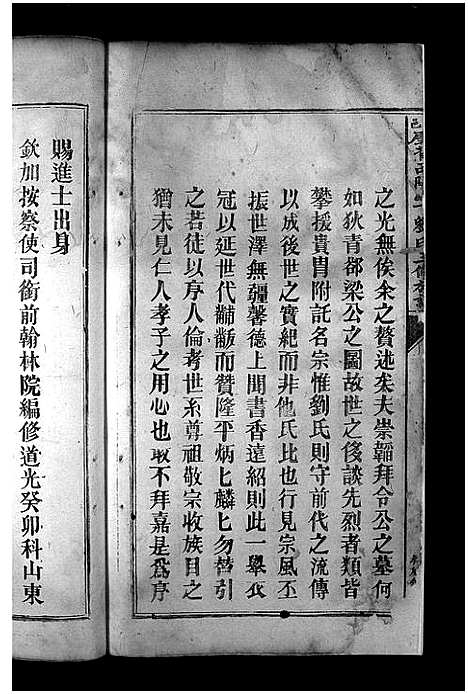 之光無俟余之贅述矣夫崇韜拜令公之墓何
如狄青郤梁公之圖故世之侈談先烈者類皆
攀援貴胄附託名宗惟劉氏則守前代之流傳
以成後世之實紀而非他氏比也行見宗風丕
振世澤無疆馨德上聞書香遠紹則此一舉衣
冠以延世代黼黻而贊隆平炳匕麟匕勿替引
之若徒以序人倫考世系尊祖敬宗收族目之
猶未見仁人孝子之用心也敢不拜嘉是為序
賜進士出身
欽加按察使司銜前翰林院編修道光癸卯科山東